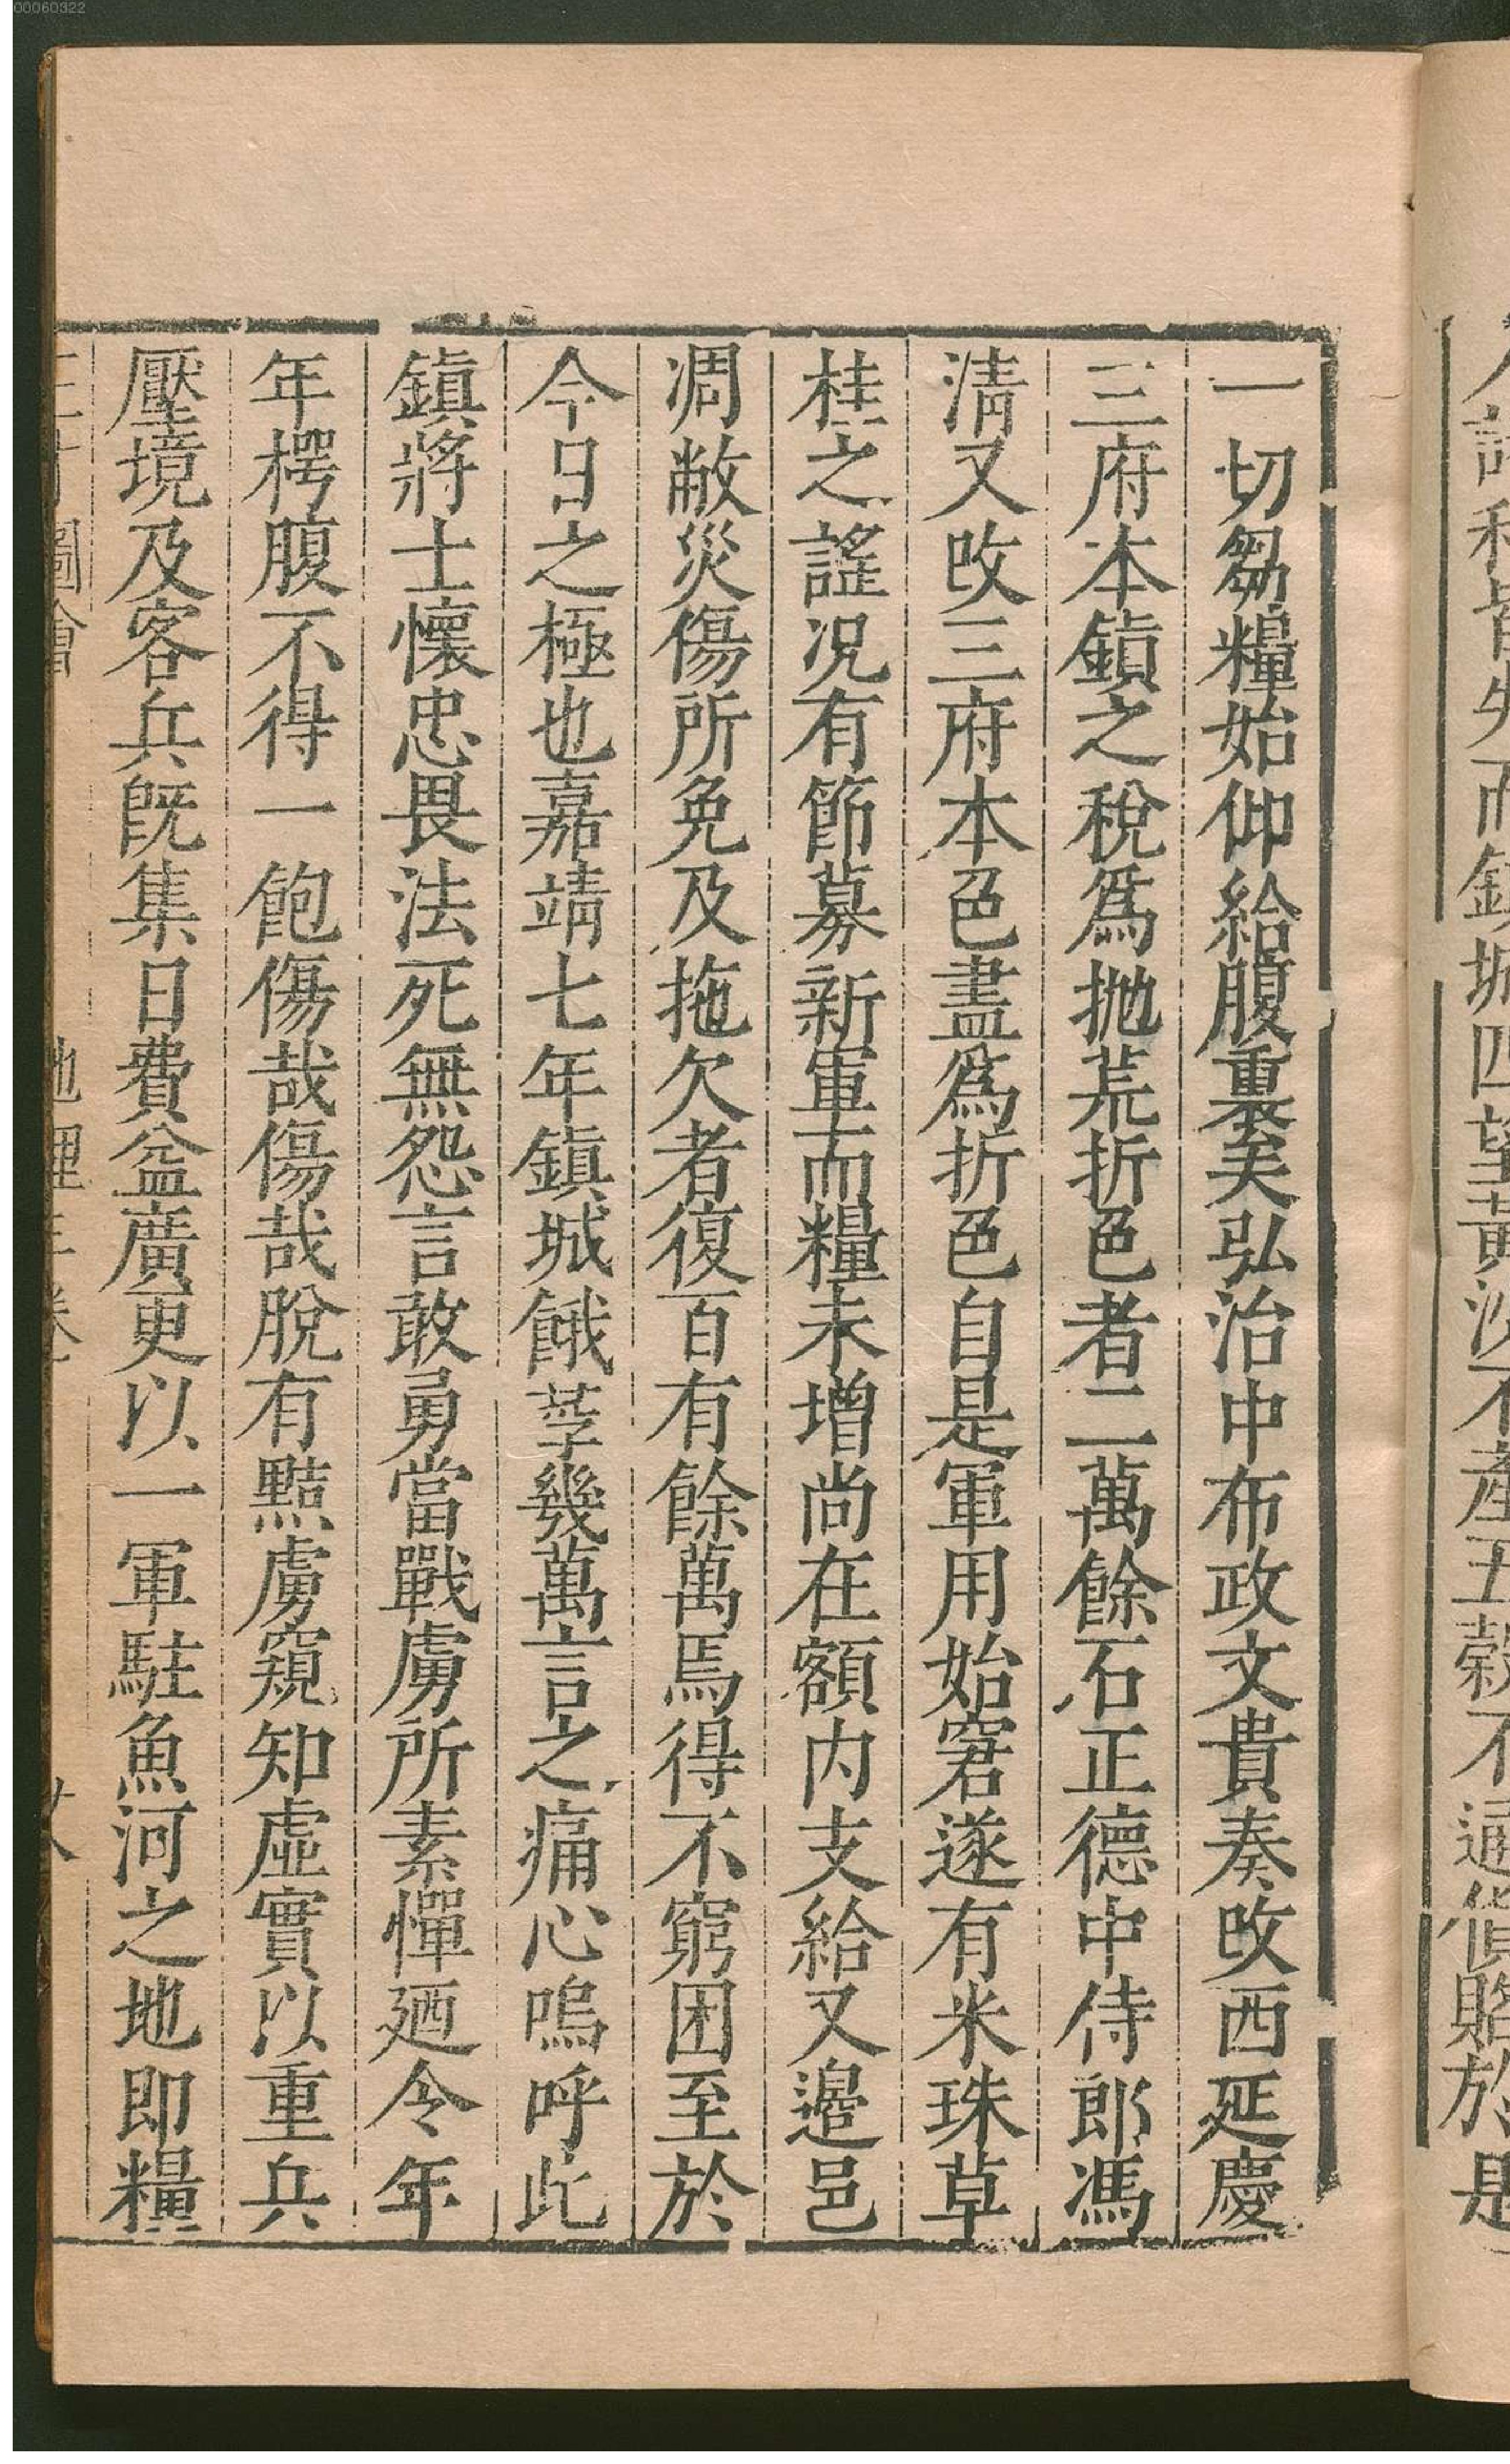 00060322
一切芻糧始仰給腹裏矣弘治中布政文貴奏改西延慶
三府本鎮之稅爲拋荒折色者二萬餘石正德中侍郎馮
清又改三府本色盡爲折色自是軍用始窘遂有米珠草
桂之謠况有節募新軍而糧未增尚在額内支給又邊邑
凋敝災傷所免及拖欠者復百有餘萬焉得不窮困至於
今日之極也嘉靖七年鎮城餓莩幾萬言之痛心嗚呼此
鎮將士懷忠畏法死無怨言敢勇當戰虜所素憚廼今年
年枵腹不得一飽傷哉傷哉脫有黠虜窺知虛實以重兵
壓境及客兵既集日費益廣更以一軍駐魚河之地即糧
圖會 地理三卷
而鎮城四望黃沙不產五穀不通貨賂於是